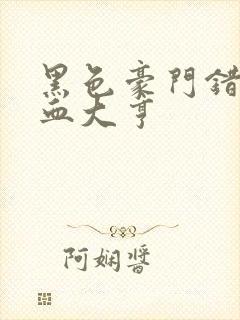 黑色豪門錯
血大亨
阿娴醬